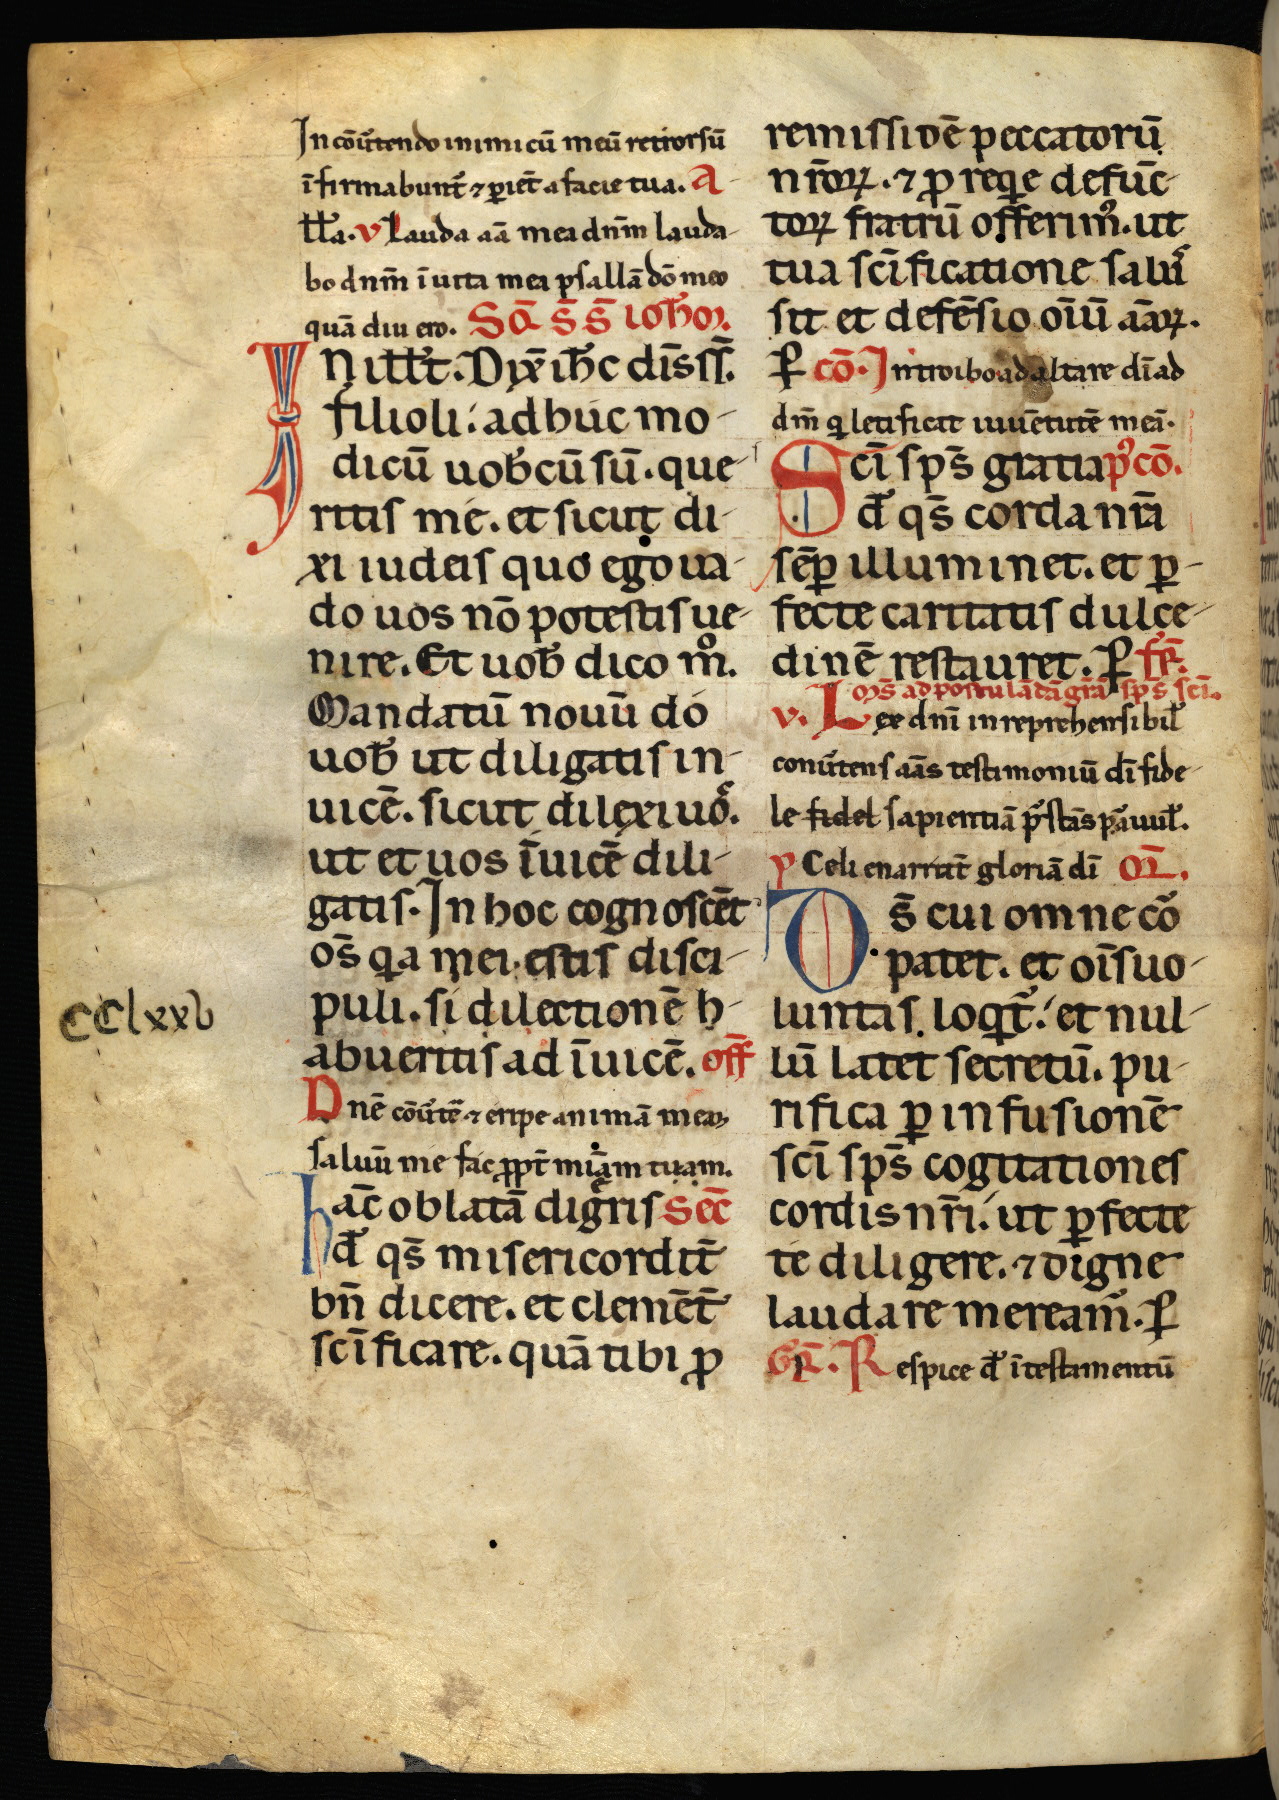 In cōūtendo inimicū meū retrorsū
ī firmabunt̄ ⁊ ꝑiet̄ a facie tua. A
ll̄a. v Lauda aā mea dnm̄ lauda-
bo dnm̄ ī uita mea psallā dō meo
quā diu ero. Sꝗ̄ s̄ s̄ ioh̄oꝫ.
In ill̄t. Dix̄ ih̄c dīs ss̄.
filioli: adhuc mo-
dicū uob̄cū sū. que-
ritis me. et sicut di-
xi iudeis quo ego ua-
do uos nō potestis ue-
nire. Et uob̄ dico mͦ.
Mandatū nouū do
uob̄ ut diligatis in-
uicē. sicut dilexi uoˢ.
ut et uos īuicē dili-
gatis. In hoc cognoscēt
os̄ qa mei estis disci-
puli. si dilectionē h-
abueritis ad īuicē. off̄
Dnē cōūtē ⁊ eripe animā meaꝫ
saluū me fac ꝓpt̄ miām tuam.
hac̄ oblatā digr̄is sec̄
d̄ qs̄ misericordit̄
bn̄ dicere. et clemēt̄
scīficare. quā tibi ꝓ
CClxxb
remissioē peccatorū
nr̄oꝝ. ⁊ ꝓ reqͥe defūc-
toꝝ fratrū offerimꝰ. ut
tua scīficatione salui
sit et defēsio oīū aāꝝ.
ꝑ cō. Introibo ad altare dī ad
dm̄ q letificat iuuētutē meā.
Scī sps̄ gratia pꝰcō.
d̄ qs̄ corda nr̄a
sēꝑ illuminet. et ꝑ-
fecte caritatis dulce-
dinē restauret. ꝑ fr̄.
oꝫs̄ ad postulādā grā sps̄ scī.
v. Lex dnī inreprehensibil̄
conūtens aās testimoniū dī fide-
le fidel sapientiā p̄stās pāuul̄.
p Celi enarrāt gloriā dī oꝝ̄.
Ds̄ cui omne cō
patet. et oīs uo-
luntas loqt̄ᷣ: et nul-
lū latet secretū. pu-
rifica ꝑ infusionē
scī sps̄ cogitationes
cordis nr̄i: ut ꝑfecte
te diligere. ⁊ digne
laudare mereamᷣ. ꝑ
Gꝝ̄. Respice d̄ ī testamentū